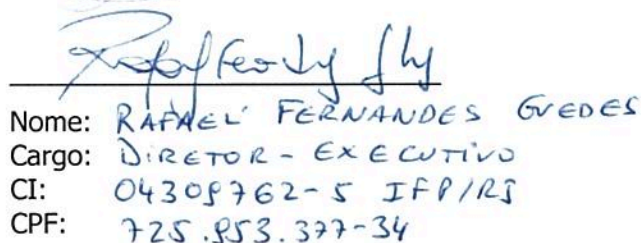 Nome: RAFAEL FERNANDES GUEDES
Cargo: DIRETOR - EXECUTIVO
CI: 04309762-5 IFP/RJ
CPF: 725.953.377-34